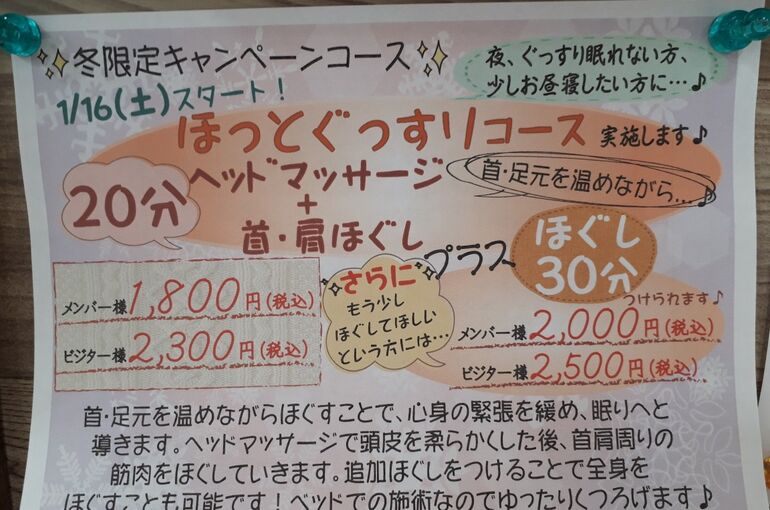 冬限定キャンペーンコース
1/16(土)スタート!
夜、ぐっすり眠れない方、
少しお昼寝したい方に…♪
ほっとぐっすりコース 実施します♪
20分 ヘッドマッサージ
+
首・肩ほぐし
首・足元を温めながら…♪
メンバー様 1,800円(税込)
ビジター様 2,300円(税込)
さらに
もう少し
ほぐしてほしい
という方には…
プラス ほぐし
30分
つけられます♪
メンバー様 2,000円(税込)
ビジター様 2,500円(税込)
首・足元を温めながらほぐすことで、心身の緊張を緩め、眠りへと
導きます。ヘッドマッサージで頭皮を柔らかくした後、首肩周りの
筋肉をほぐしていきます。追加ほぐしをつけることで全身を
ほぐすことも可能です!ベッドでの施術なのでゆったりくつろげます♪